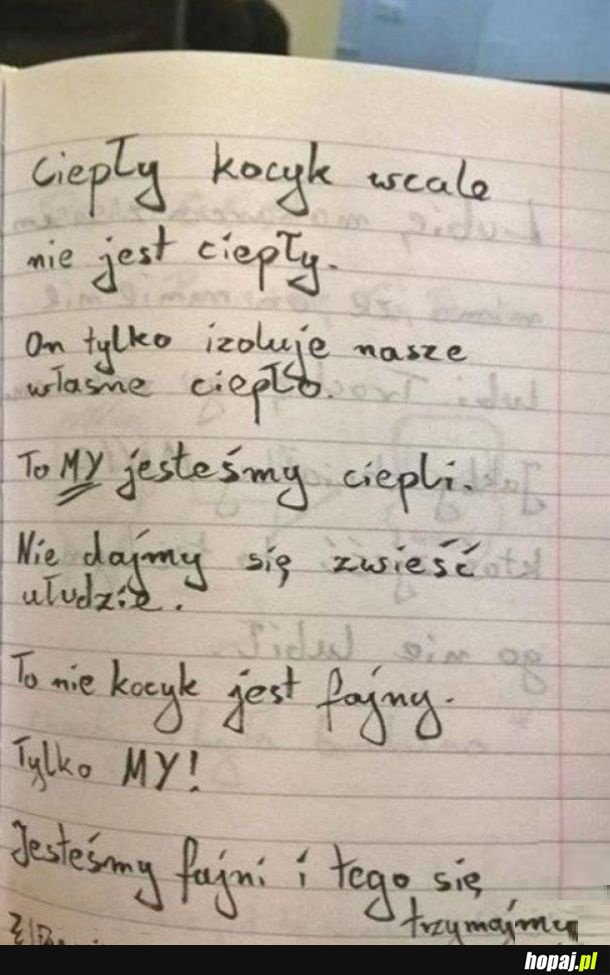 Ciepły kocyk wcale
nie jest ciepły.
On tylko izoluje nasze
własne ciepło.
To MY jesteśmy ciepli.
Nie dajmy się zwieść
ułudzie.
To nie kocyk jest fajny.
Tylko MY!
Jesteśmy fajni i tego się
trzymajmy
hopaj.pl